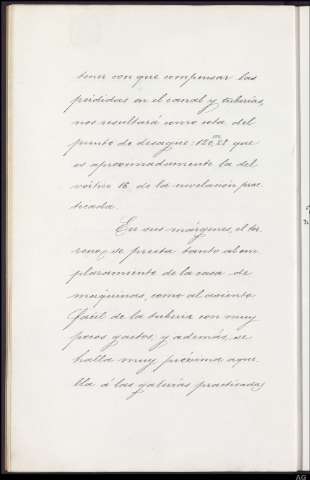 tener con que compensar las
pérdidas en el canal y tuberías,
nos resultará como cota del
punto de desague: 126,22 que
es aproximadamente la del
vértice 16 de la nivelación prac
ticada.
En sus márgenes, el ter
reno, se presta tanto al em
plazamiento de la casa de
máquinas, como al asiento
facil de la tuberia con muy
pocos gastos, y además, se
halla muy próxima aque
lla á las galerías practicadas
AG